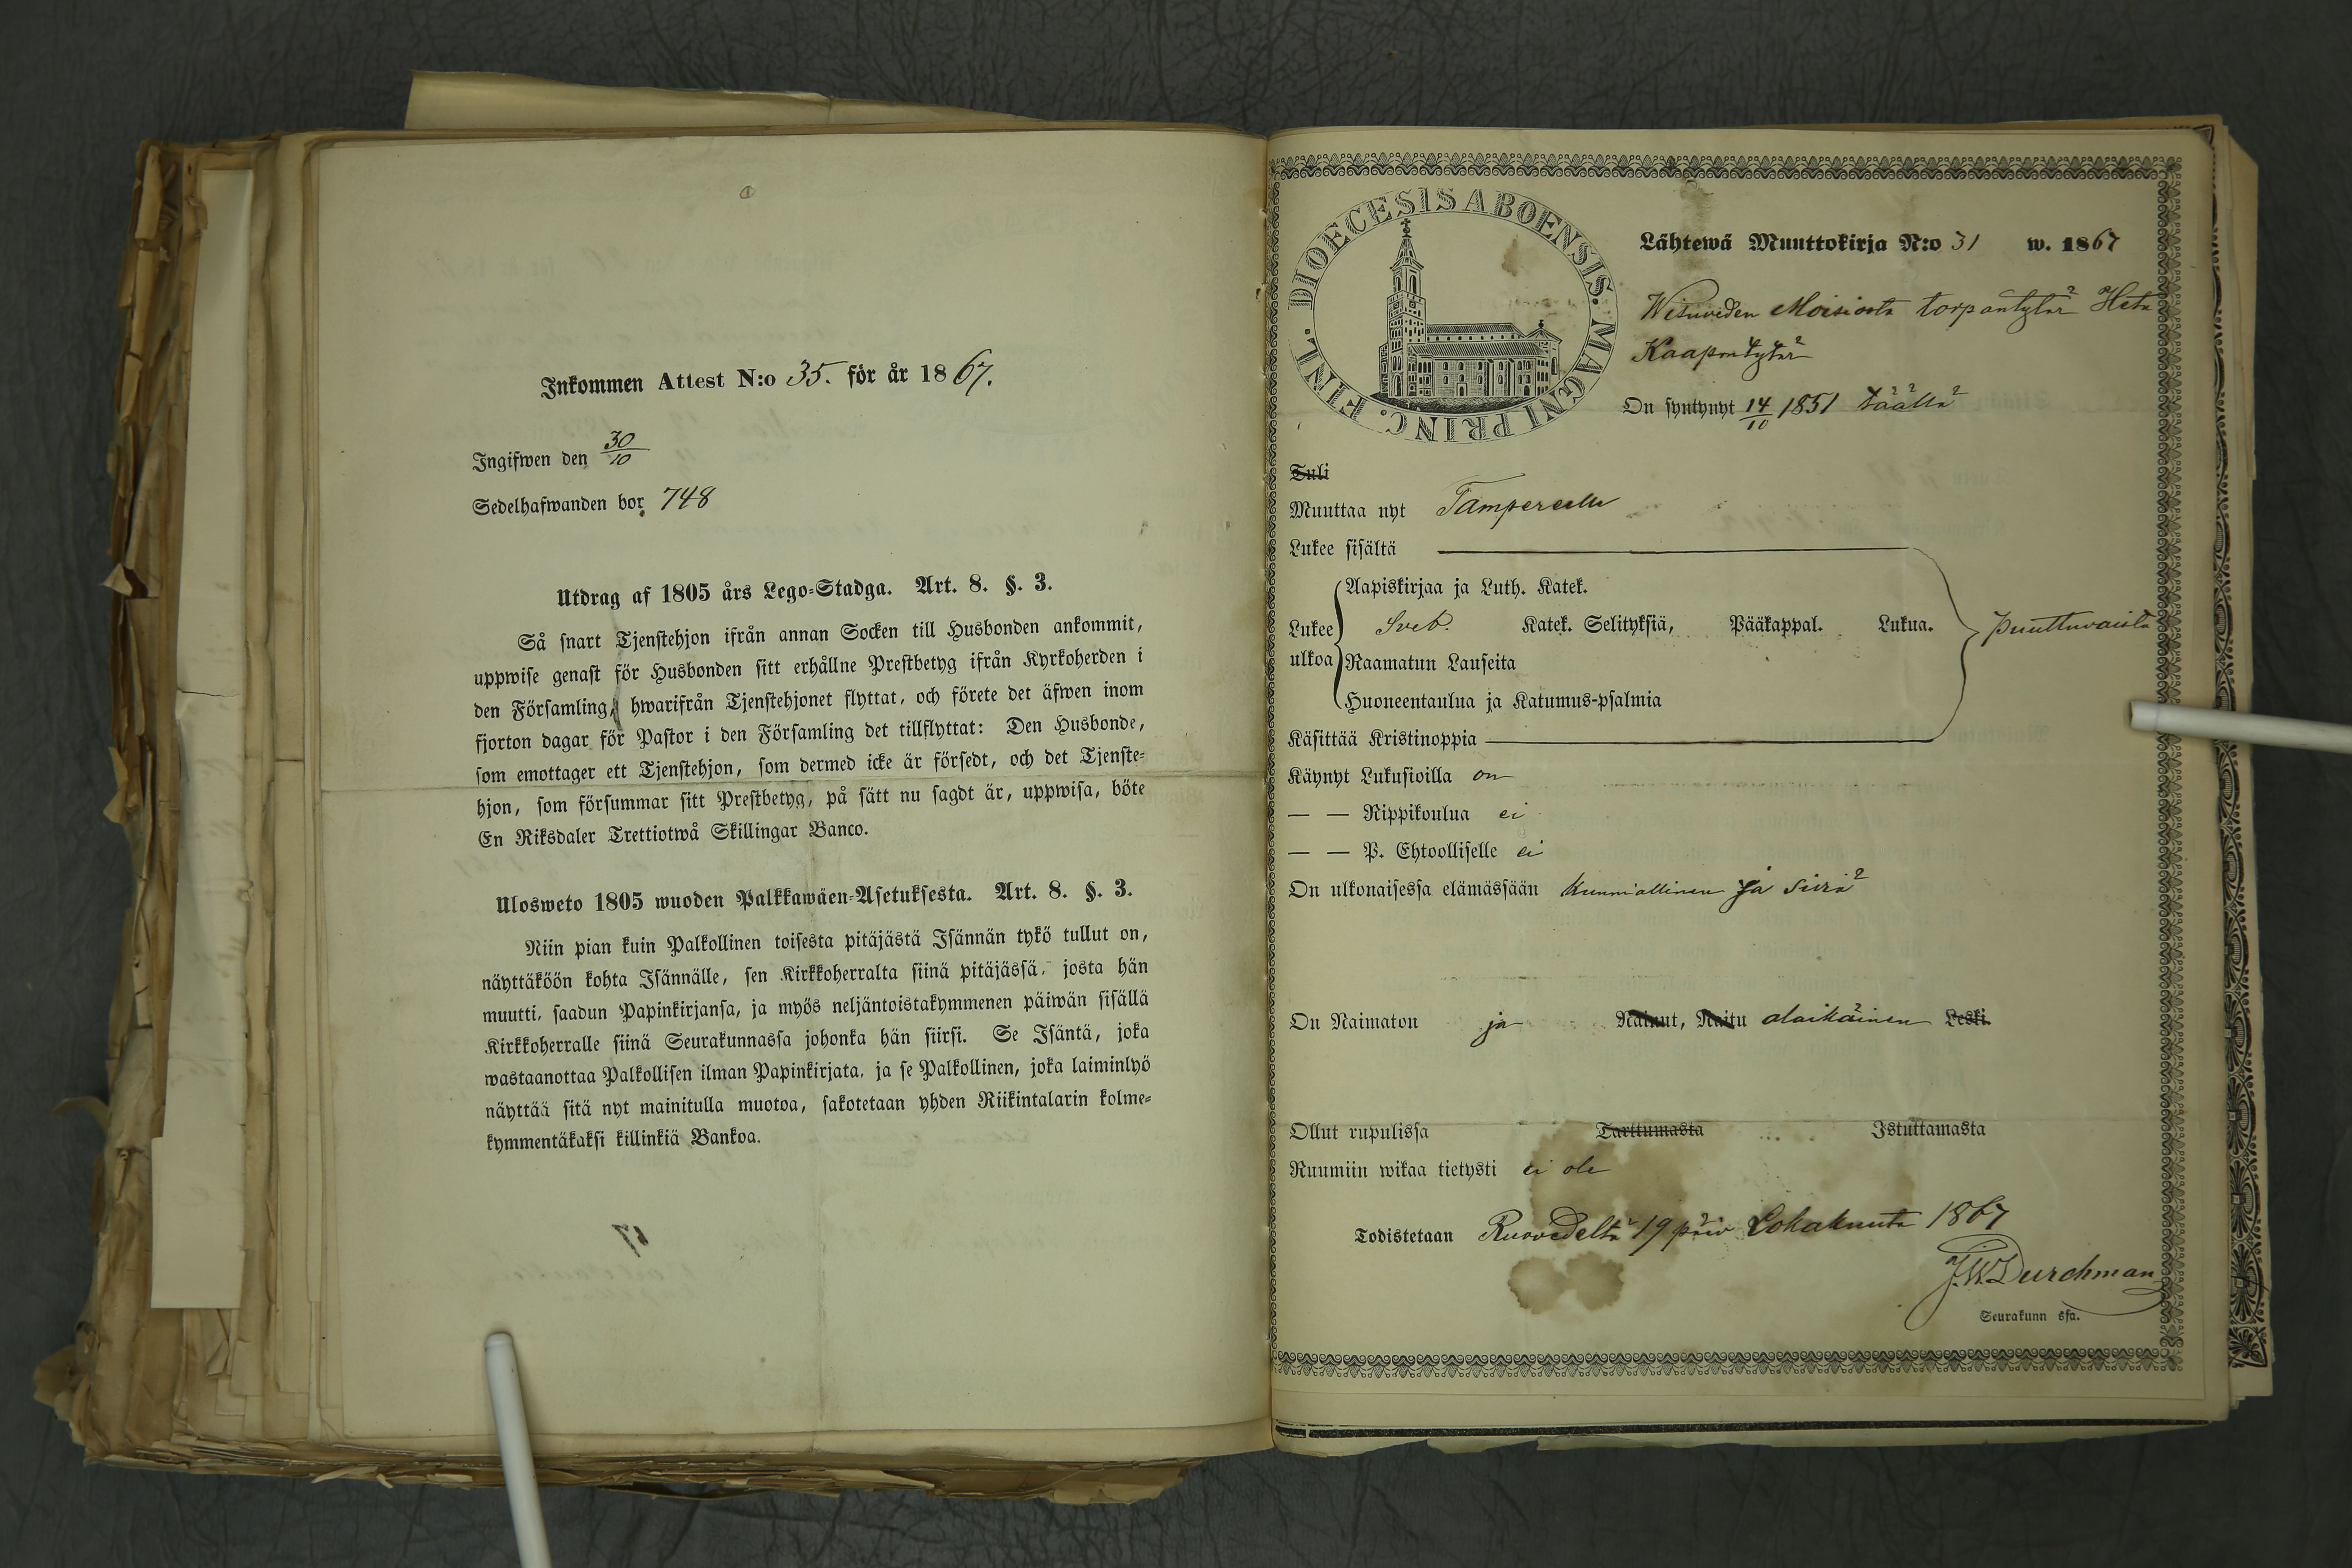 Inkommen Attest N:o 35. för år 1867.
Ingifwen den 30/10
Sedelhafwanden bor 748
Utdrag af 1805 års Lego-Stadga. Art. 8. §. 3.
Så snart Tjenstehjon ifrån annan Socken till Husbonden ankommit,
uppwise genast för Husbonden sitt erhållne Prestbetyg ifrån Kyrkoherden i
den Församling, hwarifrån Tjenstehjonet flyttat, och förete det äfwen inom
fjorton dagar för Pastor i den Församling det tillflyttat: Den Husbonde,
som emottager ett Tjenstehjon, som dermed icke är försedt, och det Tjenste-
hjon, som försummar sitt Prestbetyg, på sätt nu sagdt är, uppwisa, böte
En Riksdaler Trettiotwå Skillingar Banco.
Ulosweto 1805 wuoden Palkkawäen-Asetuksesta. Art. 8. §. 3.
Niin pian kuin Palkollinen toisesta pitäjästä Isännän tykö tullut on,
näyttäköön kohta Isännälle, sen Kirkkoherralta siinä pitäjässä, josta hän
muutti, saadun Papinkirjansa, ja myös neljäntoistakymmenen päiwän sisällä
Kirkkoherralle siinä Seurakunnassa johonka hän siirsi. Se Isäntä, joka
wastaanottaa Palkollisen ilman Papinkirjata, ja se Palkollinen, joka laiminlyö
näyttää sitä nyt mainitulla muotoa, sakotetaan yhden Riikintalarin kolme-
kymmentäkaksi killinkiä Bankoa.
DIOECESIS ABOENSIS. MAGNI PRINC. FINL.
Lähtewä Muuttokirja N:o 31 w. 1867
Wisuveden Moisiosta torpantytär Heta
Kaapontytär
On syntynyt 14/10 1851 täällä
Tuli
Muuttaa nyt Tampereelle
Lukee sisältä
Aapiskirjaa ja Luth. Katek.
Lukee Sveb. Katek. Selityksiä, Pääkappal. Lukua. puuttuvaista
ulkoa Raamatun Lauseita
Huoneentaulua ja Katumus-psalmia
Käsittää Kristinoppia
Käynyt Lukusioilla on
— — Rippikoulua ei
— — P. Ehtoolliselle ei
On ulkonaisessa elämässään kunniallinen ja siiviä
On Naimaton ja Nainut, Naitu alaikäinen Leski.
Ollut rupulissa Tarttumasta Istuttamasta
Ruumiin wikaa tietysti ei ole
Todistetaan Ruovedeltä 19 päiv Lokakuuta 1867
F.W. Durchman
Seurakunn ssa.